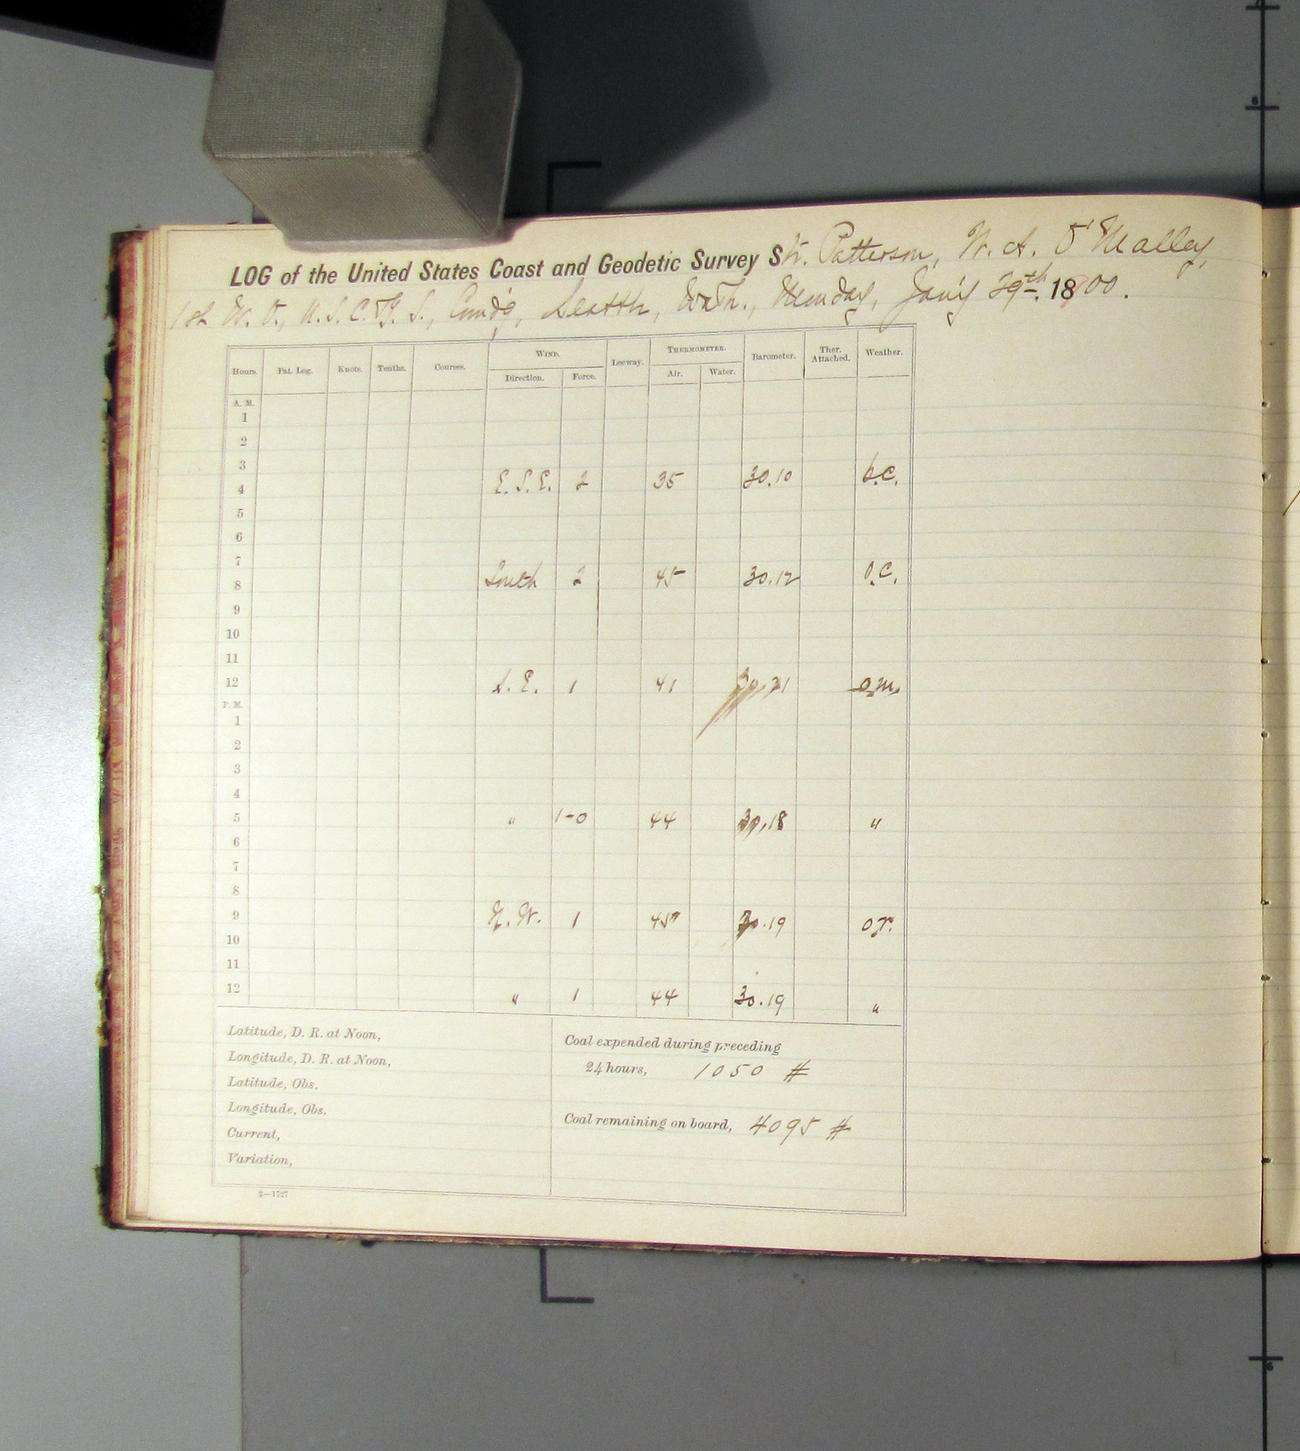 LOG of the United States Coast and Geodetic Survey Str. Patterson, W. A. O'Malley,
1st W. O., U. S. C. & G. S., Comd'g, Seattle, Wash., Monday, Jan'y 29th. 1800.
Hours. Pat. Log. Knots. Tenths. Courses. WIND. Leeway. THERMOMETER. Barometer. Ther. Attached. Weather.
Direction. Force. Air. Water.
A. M.
1
2
3
4 E. S. E. 2 35 30.10 b.c.
5
6
7
8 South 2 45 30.12 o.c.
9
10
11
12 S. E. 1 41 30.21 o.m.
P. M.
1
2
3
4
5 " 1-0 44 30.18 "
6
7
8
9 N. W. 1 45 30.19 o.r.
10
11
12 " 1 44 30.19 "
Latitude, D. R. at Noon,
Longitude, D. R. at Noon,
Latitude, Obs.
Longitude, Obs.
Current,
Variation,
Coal expended during preceding
24 hours, 1050 #
Coal remaining on board, 4095 #
2—1727
6
6